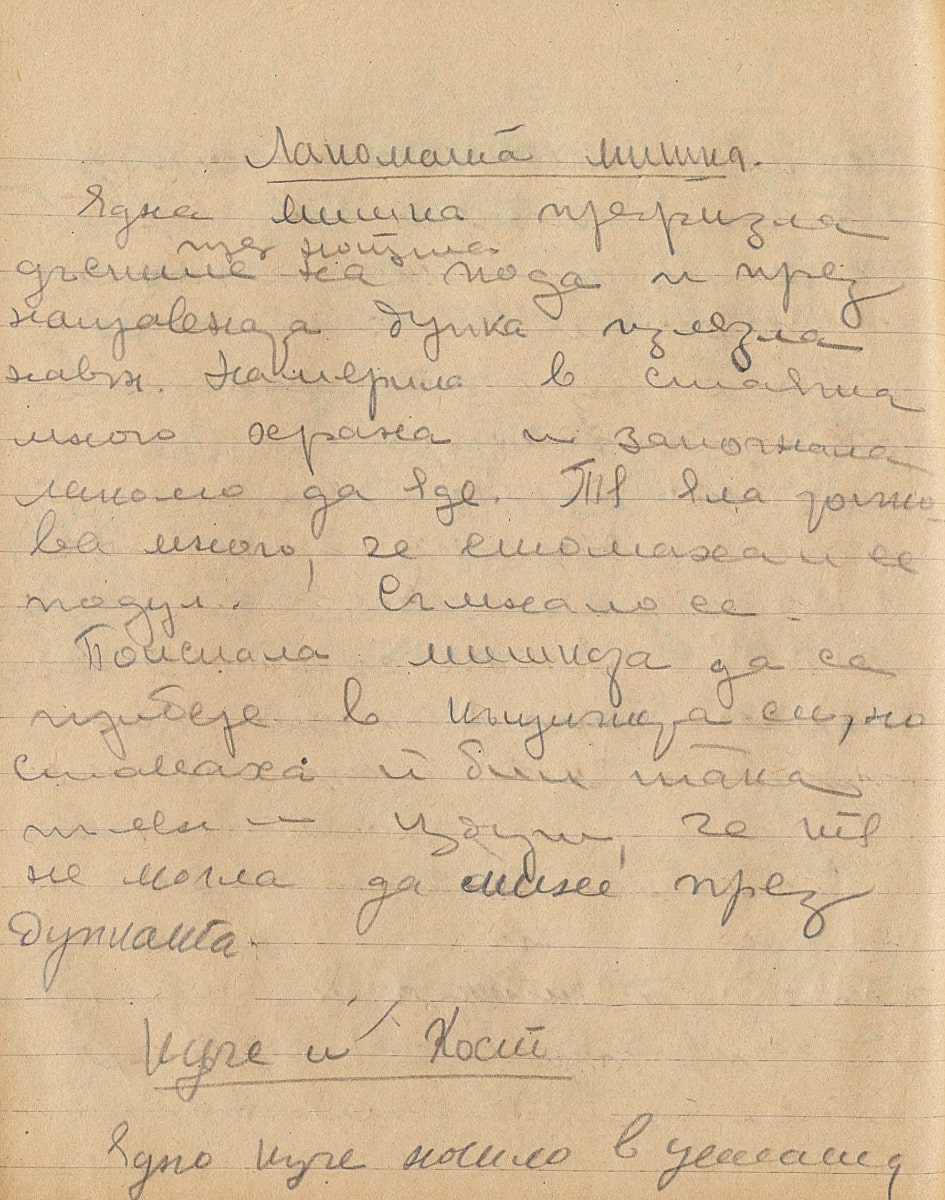 Лакомата мишка.
Ядна мишка прегризла
през нощта
дъските на пода и през
направената дупка излязла
навън. Намерила в стаята
много храна и започнала
лакомо да яде. Тя яла
много, че стомаха и се
подул. Съмнало се.
Поискала мишката да се
прибере в къщичката си, но
стомаха и бил така
пълен и издут, че тя
не могла да мине през
дупката.
Куче и Кост
Ядно куче носило в устата